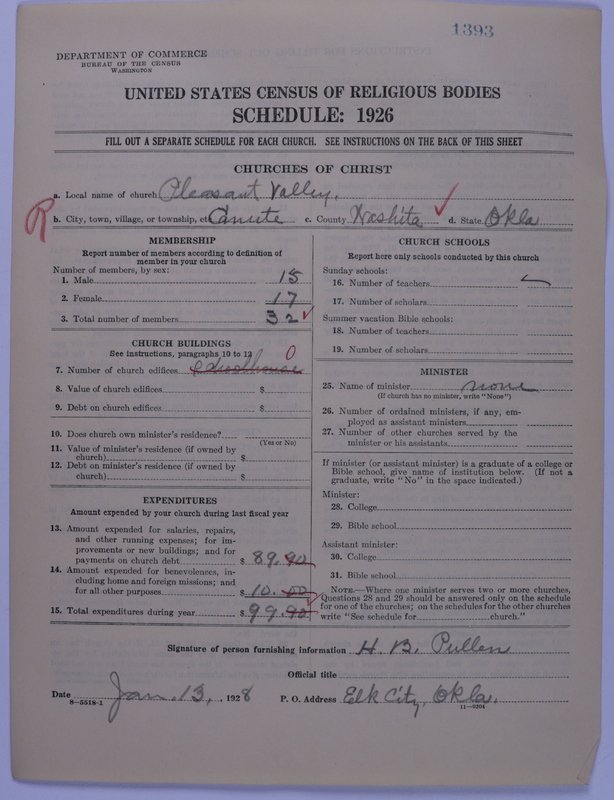 1393
DEPARTMENT OF COMMERCE
BUREAU OF THE CENSUS
WASHINGTON
UNITED STATES CENSUS OF RELIGIOUS BODIES
SCHEDULE: 1926
FILL OUT A SEPARATE SCHEDULE FOR EACH CHURCH. SEE INSTRUCTIONS ON THE BACK OF THIS SHEET
CHURCHES OF CHRIST
a. Local name of church Pleasant Valley.
R b. City, town, village, or township, etc Canute c. County Washita ✓ d. State Okla
MEMBERSHIP
Report number of members according to definition of
member in your church
Number of members, by sex:
1. Male 15
2. Female 17
3. Total number of members 32 ✓
CHURCH BUILDINGS
See instructions, paragraphs 10 to 12
7. Number of church edifices schoolhouse 0
8. Value of church edifices $
9. Debt on church edifices $
10. Does church own minister's residence?
(Yes or No)
11. Value of minister's residence (if owned by
church) $
12. Debt on minister's residence (if owned by
church) $
EXPENDITURES
Amount expended by your church during last fiscal year
13. Amount expended for salaries, repairs,
and other running expenses; for im-
provements or new buildings; and for
payments on church debt $ 89.90
14. Amount expended for benevolences, in-
cluding home and foreign missions; and
for all other purposes $ 10.00
15. Total expenditures during year $ 99.90
CHURCH SCHOOLS
Report here only schools conducted by this church
Sunday schools:
16. Number of teachers
17. Number of scholars
Summer vacation Bible schools:
18. Number of teachers
19. Number of scholars
MINISTER
25. Name of minister none
(If church has no minister, write "None")
26. Number of ordained ministers, if any, em-
ployed as assistant ministers
27. Number of other churches served by the
minister or his assistants
If minister (or assistant minister) is a graduate of a college or
Bible school, give name of institution below. (If not a
graduate, write "No" in the space indicated.)
Minister:
28. College
29. Bible school
Assistant minister:
30. College
31. Bible school
NOTE.—Where one minister serves two or more churches,
Questions 28 and 29 should be answered only on the schedule
for one of the churches; on the schedules for the other churches
write "See schedule for church."
Signature of person furnishing information H. B. Pullen
Official title
Date Jan. 13, 1928 P. O. Address Elk City, Okla.
8—5518-1 11—5204